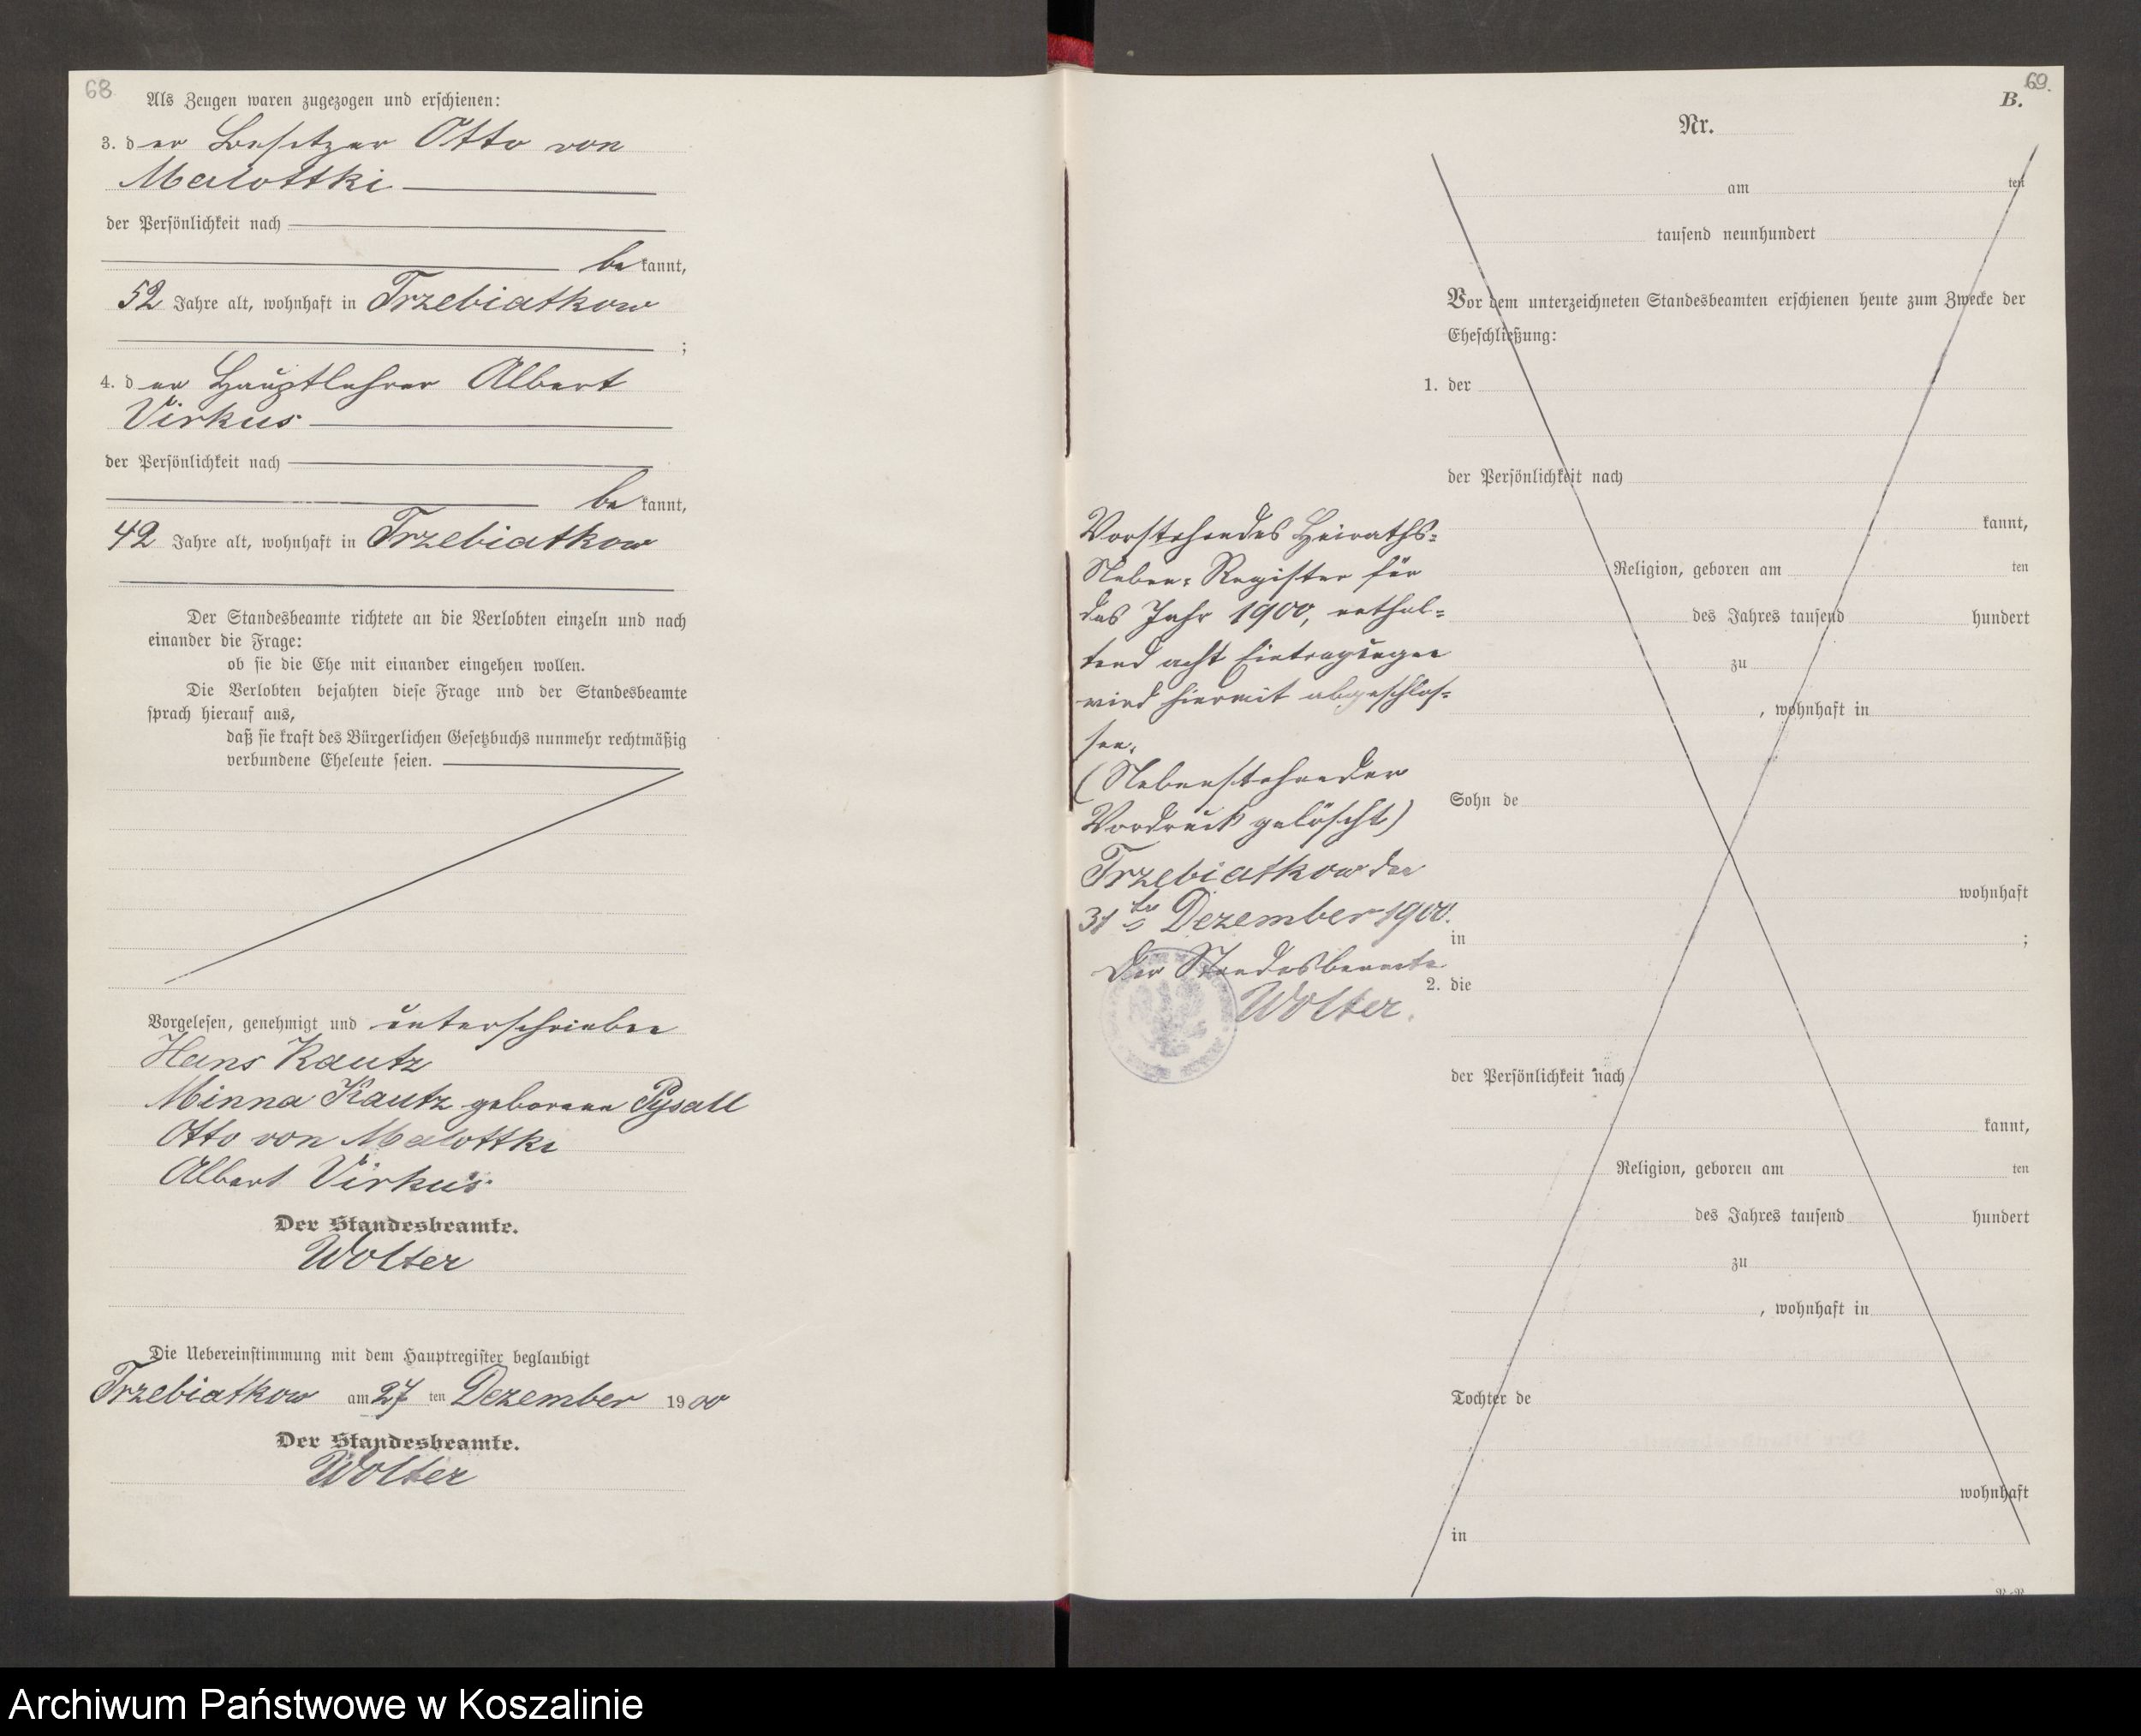 68
Als Zeugen waren zugezogen und erschienen:
3. der Besitzer Otto von
Malottki
der Persönlichkeit nach
bekannt,
52 Jahre alt, wohnhaft in Trzebiatkow
;
4. der Hauptlehrer Albert
Virkus
der Persönlichkeit nach
bekannt,
42 Jahre alt, wohnhaft in Trzebiatkow
Der Standesbeamte richtete an die Verlobten einzeln und nach
einander die Frage:
ob sie die Ehe mit einander eingehen wollen.
Die Verlobten bejahten diese Frage und der Standesbeamte
sprach hierauf aus,
daß sie kraft des Bürgerlichen Gesetzbuchs nunmehr rechtmäßig
verbundene Eheleute seien.
Vorgelesen, genehmigt und unterschrieben
Hans Kautz
Minna Kautz geborene Pysall
Otto von Malottki
Albert Virkus
Der Standesbeamte.
Wolter
Die Uebereinstimmung mit dem Hauptregister beglaubigt
Trzebiatkow am 27 ten Dezember 1900
Der Standesbeamte.
Wolter
69.
B.
Nr.
am ten
tausend neunhundert
Vor dem unterzeichneten Standesbeamten erschienen heute zum Zwecke der
Eheschließung:
1. der
der Persönlichkeit nach
kannt,
Religion, geboren am ten
des Jahres tausend hundert
zu
, wohnhaft in
Sohn de
wohnhaft
in ;
2. die
der Persönlichkeit nach
kannt,
Religion, geboren am ten
des Jahres tausend hundert
zu
, wohnhaft in
Tochter de
wohnhaft
in
Vorstehendes Heiraths-
Neben-Register für
das Jahr 1900, enthal-
tend acht Eintragungen
wird hiermit abgeschlos-
sen.
(Nebenstehender
Vordruck gelöscht)
Trzebiatkow den
31ten Dezember 1900.
Der Standesbeamte
Wolter.
Archiwum Państwowe w Koszalinie